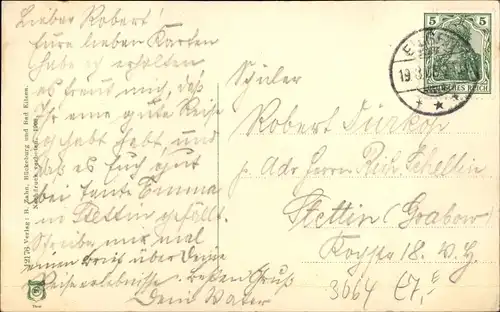 Lieber Robert!
Eure lieben Karten
habe ich erhalten
es freut mich, daß
Ihr eine gute Reise
gehabt habt, und
daß es Euch gut
bei Tante Emma
in Stettin gefällt.
Schreibe mir mal
einen Brief über Deine
Reiseerlebnisse. besten Gruß
Dein Vater
Verlag: H. Zahn, Bückeburg und Bad Eilsen.
Nachdruck verboten.
5 5
DEUTSCHES REICH
19.8.
Schüler
Robert Dürkop
p. Adr Herrn Rich. Schellin
Stettin (Grabow)
18. v. H.
3664 E7,-